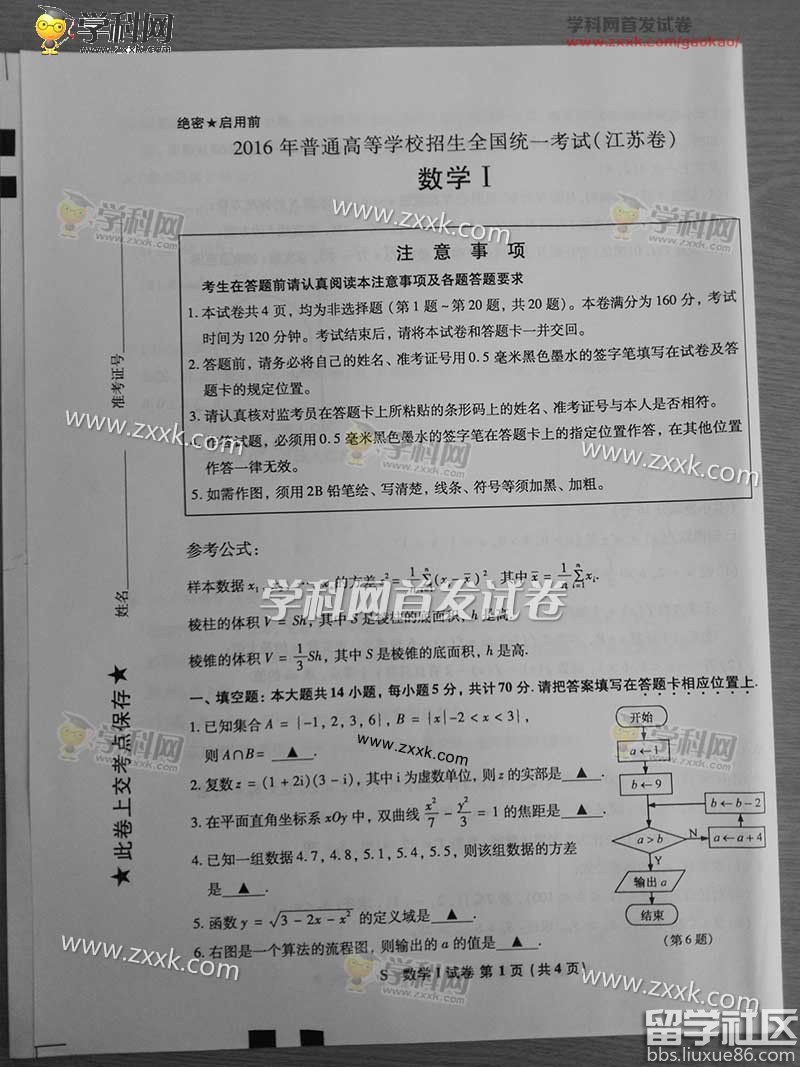 学科网
学科网首发试卷
www.zxxk.com/gaokao/
绝密★启用前
2016年普通高等学校招生全国统一考试(江苏卷)
数学Ⅰ
学科网
学科网
学科网
www.zxxk.com
注意事项
考生在答题前请认真阅读本注意事项及各题答题要求
1.本试卷共4页，均为非选择题(第1题~第20题，共20题)。本卷满分为160分，考试
时间为120分钟。考试结束后，请将本试卷和答题卡一并交回。
2.答题前，请务必将自己的姓名、准考证号用0.5毫米黑色墨水的签字笔填写在试卷及答
题卡的规定位置。
3.请认真核对监考员在答题卡上所粘贴的条形码上的姓名、准考证号与本人是否相符。
作答试题，必须用0.5毫米黑色墨水的签字笔在答题卡上的指定位置作答，在其他位置
作答一律无效。
5.如需作图，须用2B铅笔绘、写清楚，线条、符号等须加黑、加粗。
www.zxxk.com
学科网
www.zxxk.com
准考证号
姓名
★此卷上交考点保存★
参考公式：
样本数据x₁, …, xₙ的方差s²=1/n∑(xᵢ-x̄)², 其中x̄=1/n∑xᵢ.
学科网首发试卷
棱柱的体积V=Sh，其中S是棱柱的底面积，h是高.
棱锥的体积V=1/3Sh，其中S是棱锥的底面积，h是高.
一、填空题：本大题共14小题，每小题5分，共计70分.请把答案填写在答题卡相应位置上.
1.已知集合A={-1,2,3,6}, B={x|-2<x<3},
则A∩B=▲.
www.zxxk.com
2.复数z=(1+2i)(3-i),其中i为虚数单位,则z的实部是▲.
3.在平面直角坐标系xOy中,双曲线x²/7-y²/3=1的焦距是▲.
4.已知一组数据4.7,4.8,5.1,5.4,5.5,则该组数据的方差
是▲.
5.函数y=√(3-2x-x²)的定义域是▲.
6.右图是一个算法的流程图,则输出的a的值是▲.
开始
a←1
b←9
b←b-2
a>b
N
a←a+4
Y
输出a
结束
(第6题)
学科网
学科网
www.zxxk.com
S 数学Ⅰ试卷 第1页(共4页)
学科网
www.zxxk.com
留学社区
bbs.liuxue86.com